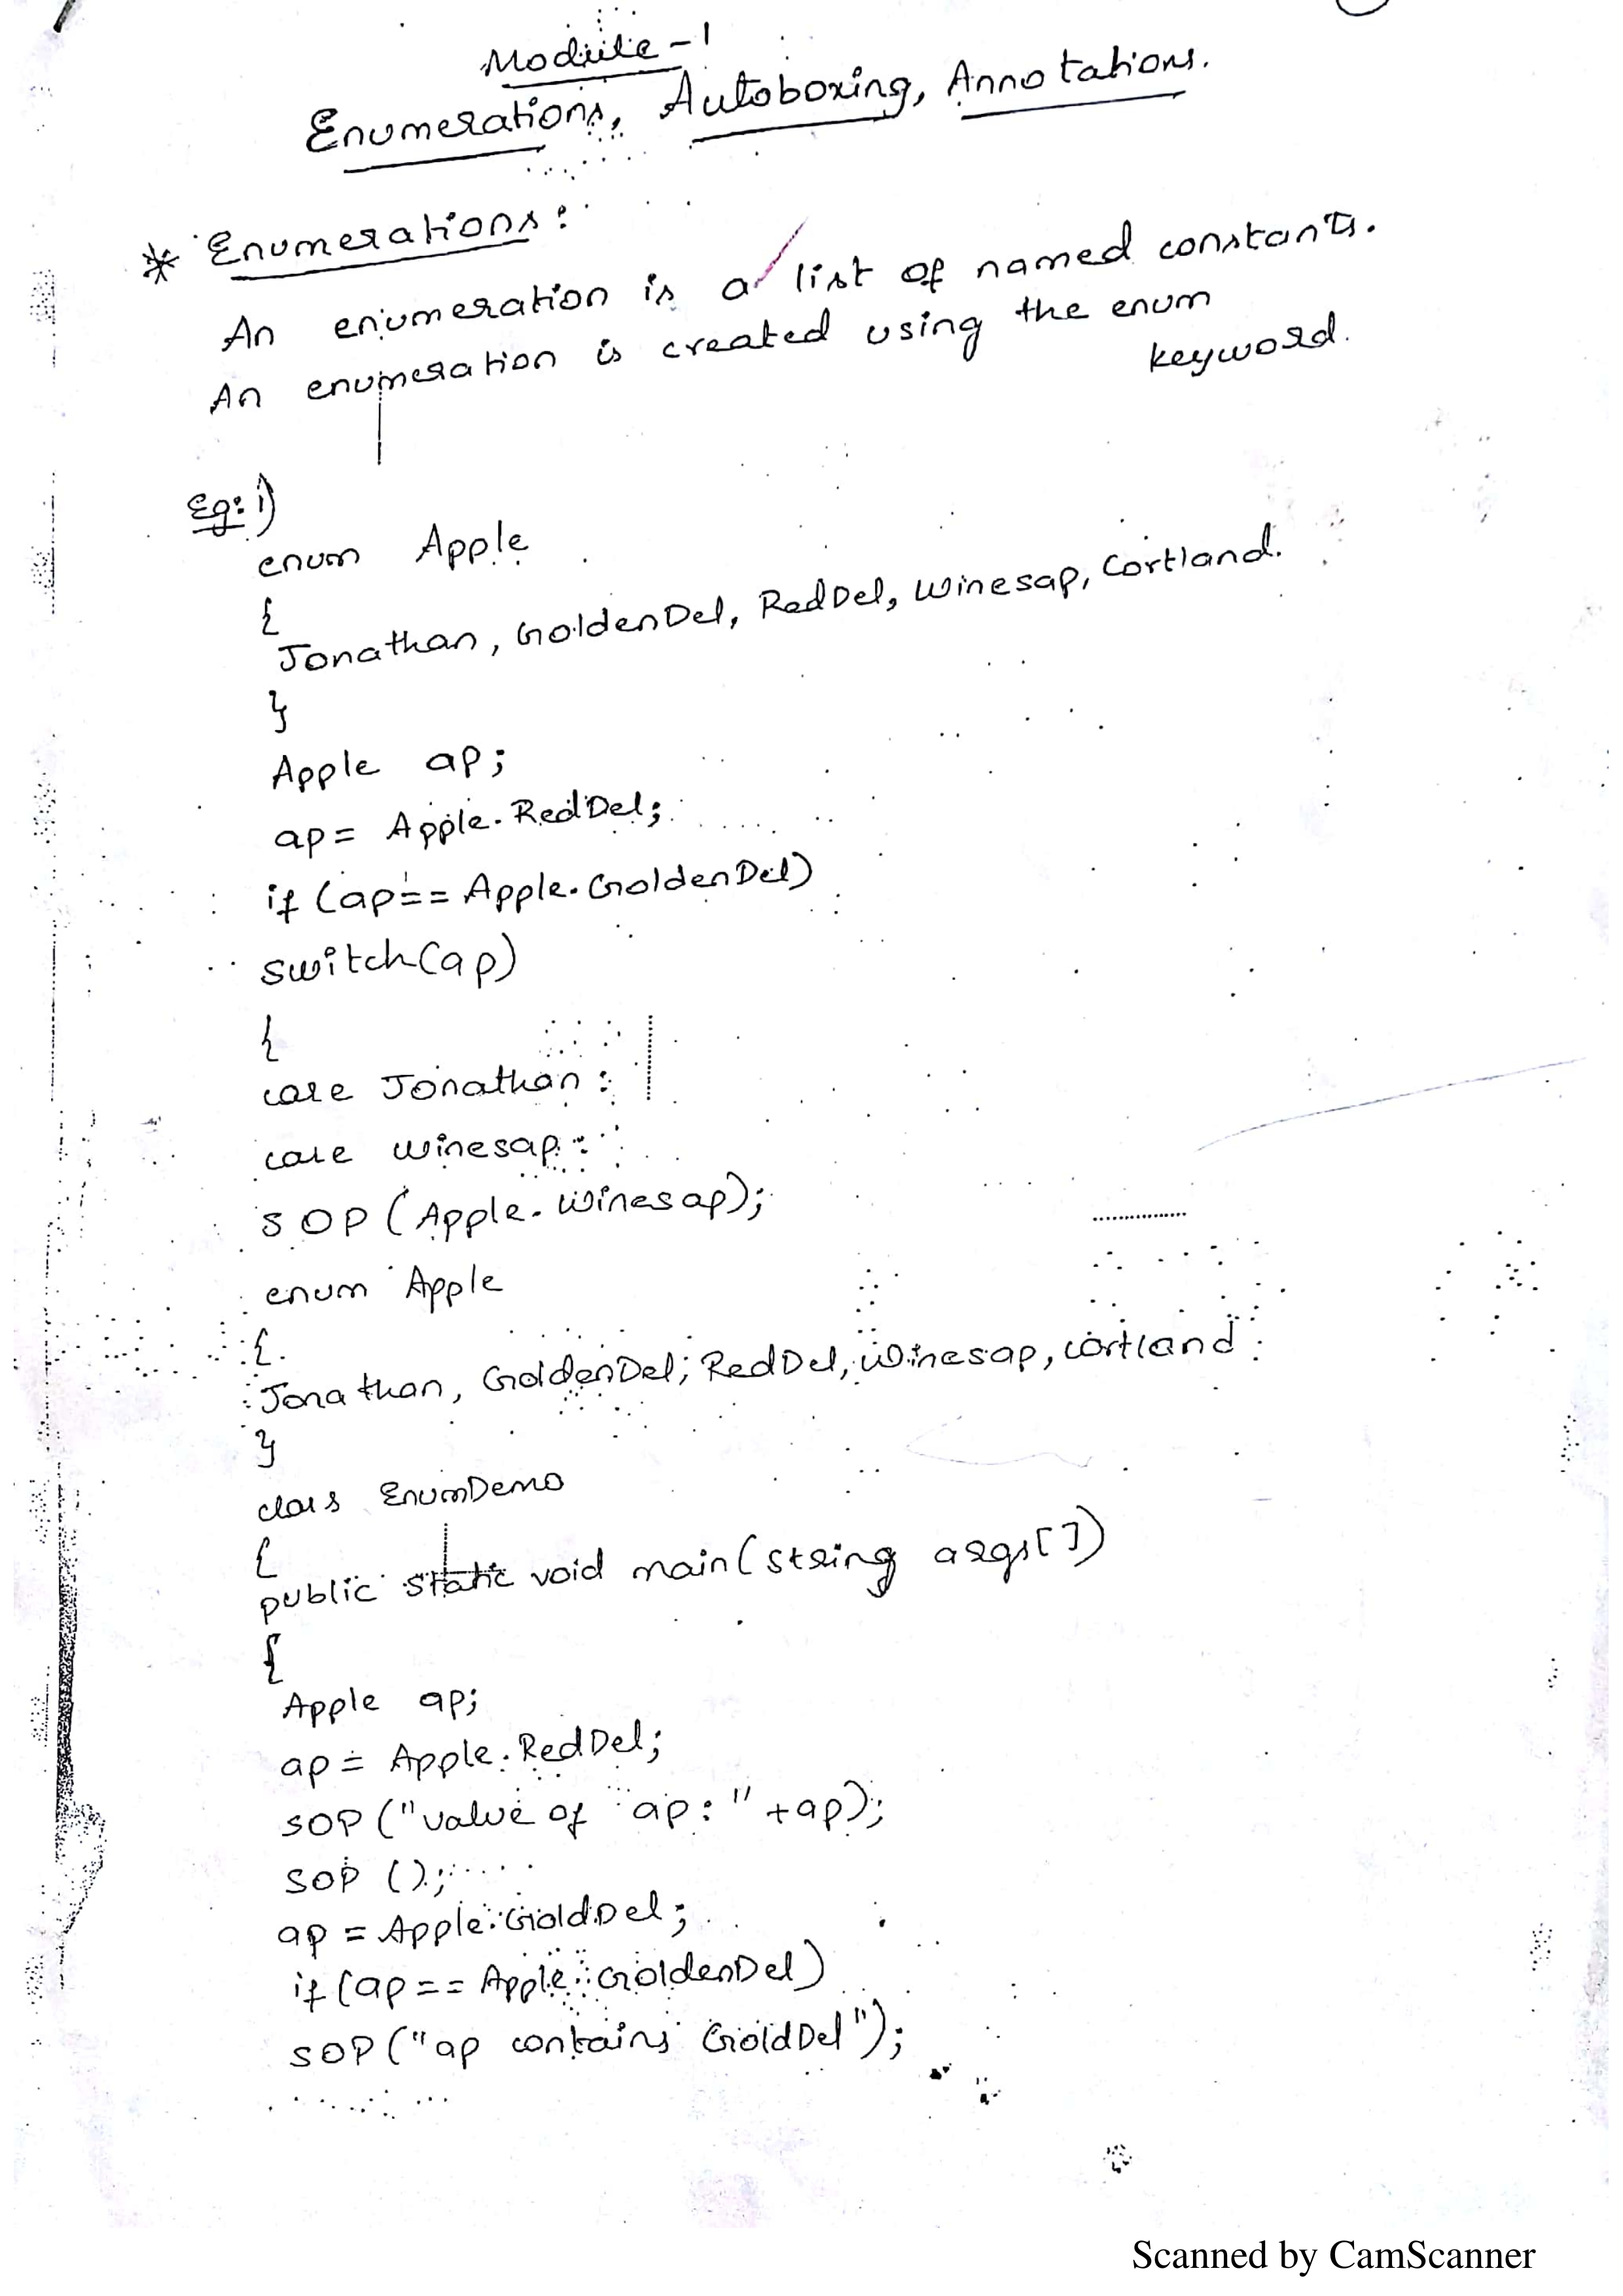 Module-1
Enumerations, Autoboxing, Annotations.
* Enumerations:
An enumeration is a list of named constants.
An enumeration is created using the enum
keyword.
Eg: 1)
enum Apple
{
Jonathan, GoldenDel, RedDel, Winesap, Cortland.
}
Apple ap;
ap = Apple.RedDel;
if (ap == Apple.GoldenDel)
switch(ap)
{
case Jonathan :
case winesap :
SOP (Apple.Winesap);
enum Apple
{
Jonathan, GoldenDel, RedDel, Winesap, cortland
}
class EnumDemo
{
public static void main(string args[])
{
Apple ap;
ap = Apple.RedDel;
SOP ("value of ap: " +ap);
SOP ();
ap = Apple.GoldDel;
if (ap == Apple.GoldenDel)
SOP ("ap contains GoldDel");
Scanned by CamScanner